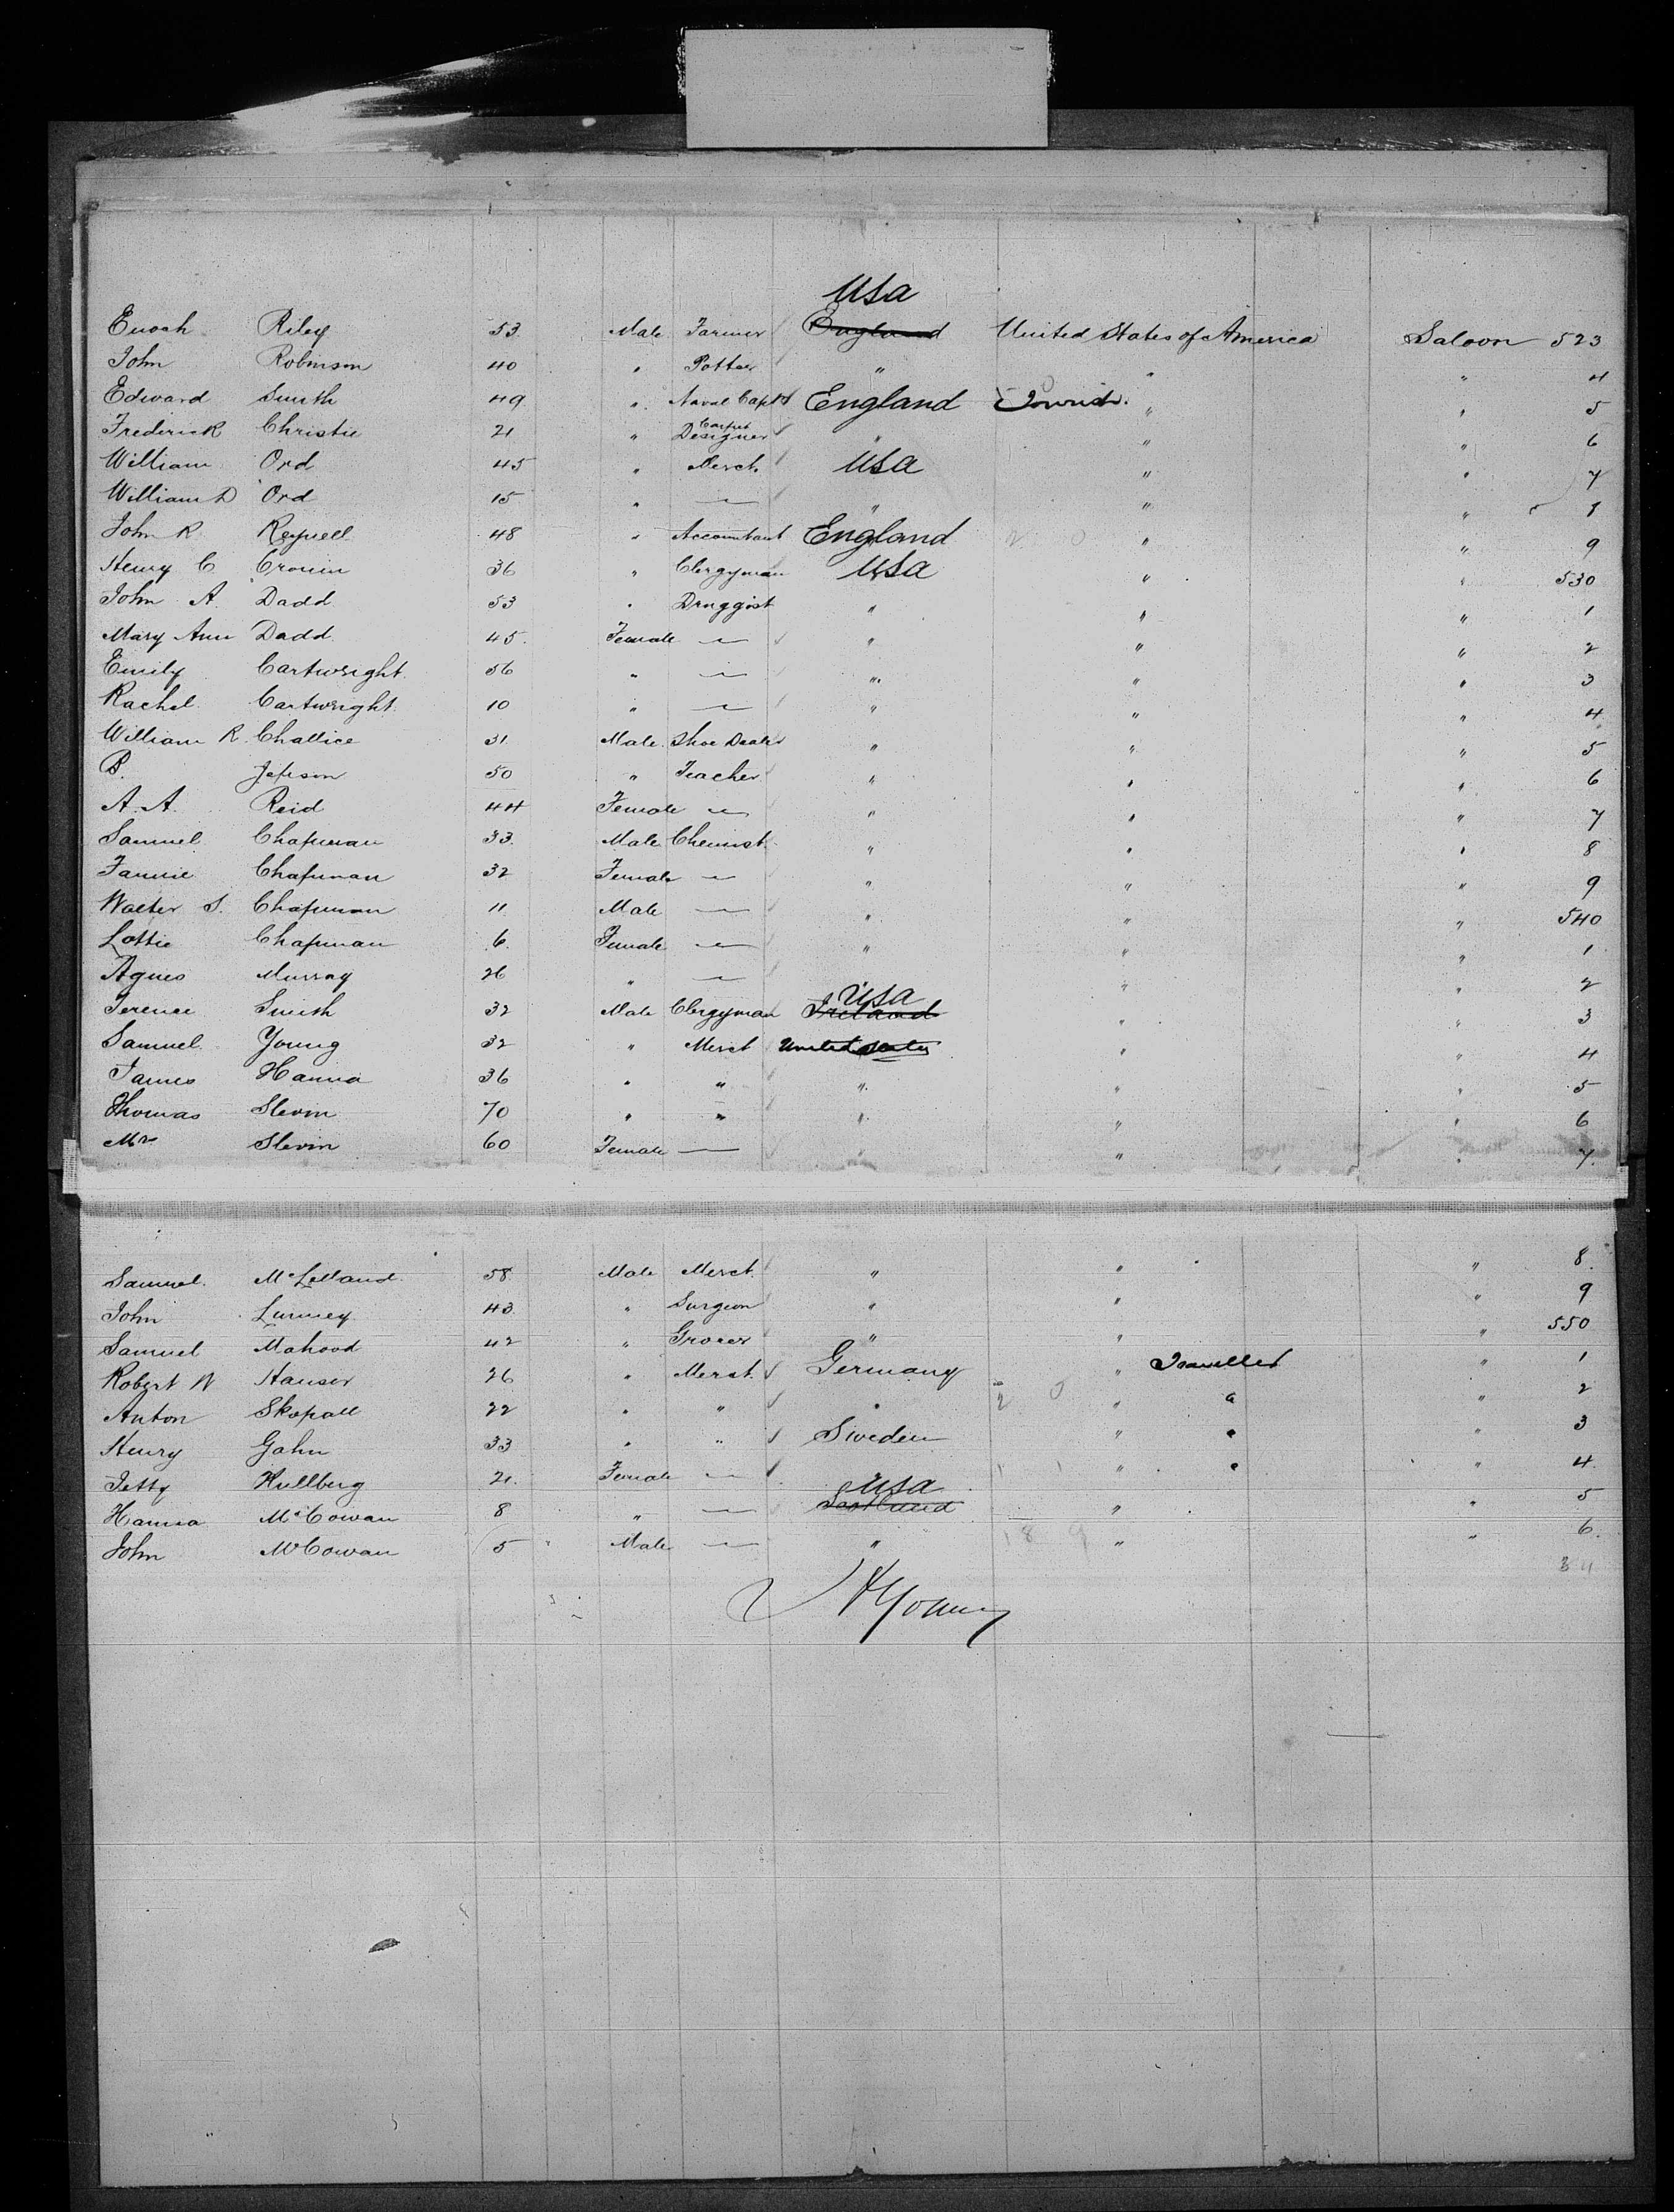 USA
Enoch Riley 53 Male Farmer England United States of America Saloon 523
John Robinson 40 " Potter " " " 4
Edward Smith 49 " Naval Captn England Tourist " " 5
Carpet
Frederick Christie 21 " Designer " " " 6
William Ord 45 " Merch. USA " " 7
William D Ord 15 " — " " " 8
John R Reynell 48 " Accountant England 2 0 " " 9
Henry C Cronin 36 " Clergyman USA " " 530
John A. Dadd 53 " Druggist " " " 1
Mary Ann Dadd 45 Female — " " " 2
Emily Cartwright 56 " — " " " 3
Rachel Cartwright 10 " — " " " 4
William R. Challice 31 Male Shoe Dealer " " " 5
B. Jepson 50 " Teacher " " " 6
A. A. Reid 44 Female — " " " 7
Samuel Chapman 33 Male Chemist " " " 8
Fannie Chapman 32 Female — " " " 9
Walter S. Chapman 11 Male — " " " 540
Lottie Chapman 6 Female — " " " 1
Agnes Murray 26 " — " " 2
USA
Terence Smith 32 Male Clergyman Ireland " " 3
Samuel Young 32 " Merct United States " " 4
James Hanna 36 " " " " " 5
Thomas Slevin 70 " " " " " 6
Mrs Slevin 60 Female — " " " 7
Samuel McLelland 58 Male Merct " " " 8
John Lurney 43 " Surgeon " " " 9
Samuel Mahood 42 " Grocer " " " 550
Robert W Hauser 26 " Merct. Germany " Traveller " 1
Anton Skopall 22 " " " 2 0 " " " 2
Henry Gahn 33 " " Sweden " " " 3
Jetty Kullberg 21 Female — " 1 1 " " " 4
USA
Hanna McCowan 8 " — Scotland " " 5
John McCowan 5 Male — " 18 9 " " 6
34
Young